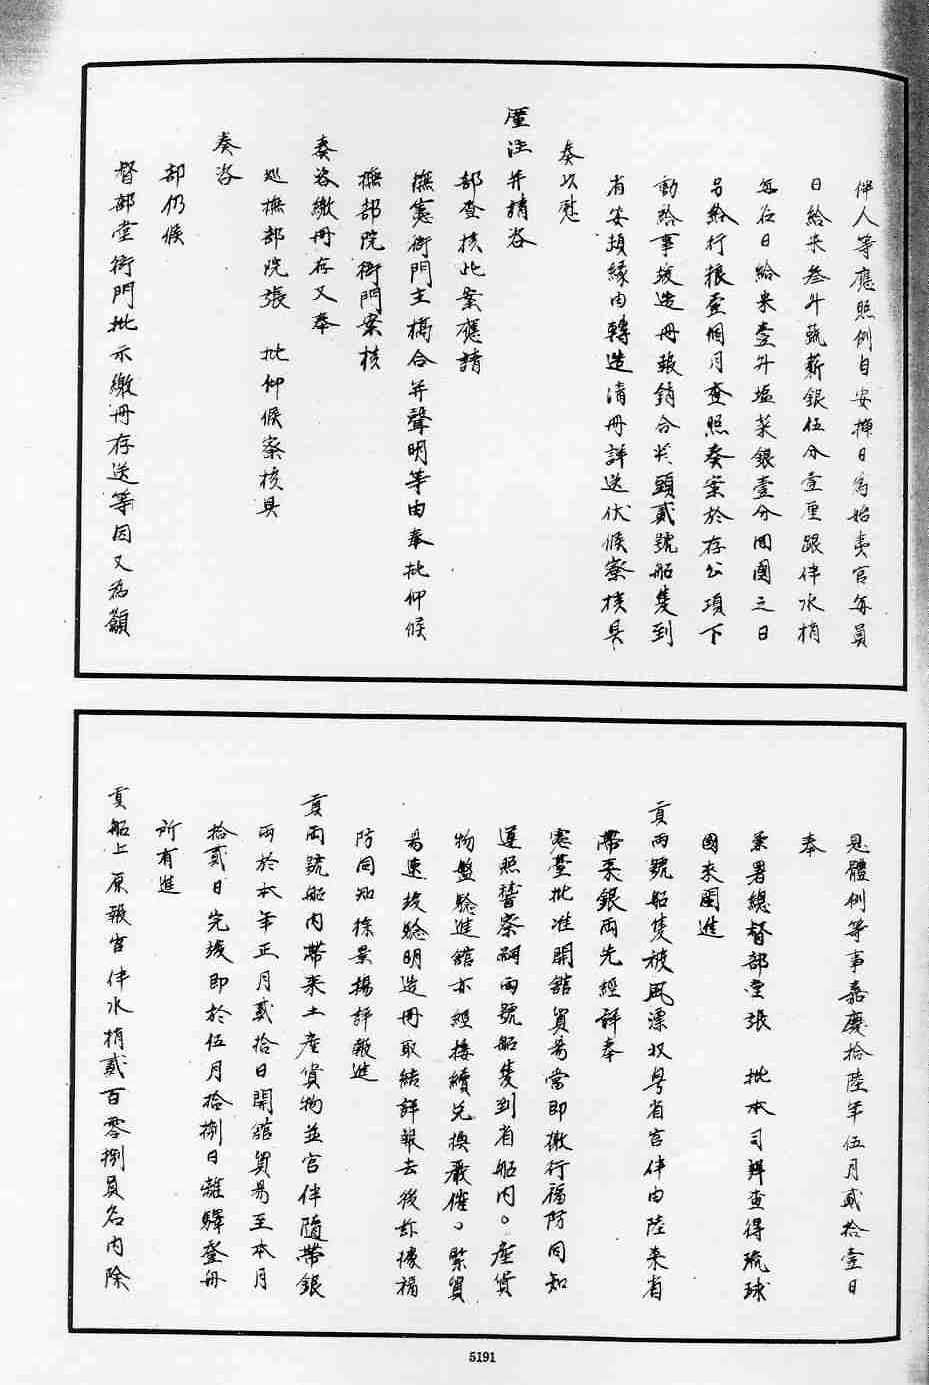 伴人等應照例自安揷日為始夷官每員
日給米叁升蔬薪銀伍分壹厘跟伴水梢
每名日給米壹升塩菜銀壹分回國之日
另給行粮壹個月查照奏案於存公項下
動給事竣造冊報銷合并頭貳號船隻到
省安揷緣由轉造清冊詳送伏候察核具
奏以慰
廑注并請咨
部查核此案應請
撫憲衙門主稿合并聲明等由奉批仰候
撫部院衙門案核
奏咨繳冊存又奉
廵撫部院張　批仰候察核具
奏咨
部仍候
督部堂衙門批示繳冊存送等因又為籲
恩體例等事嘉慶拾陸年伍月貳拾壹日
奉
兼署總督部堂張　批本司詳查得琉球
國來閩進
貢兩號船隻被風漂收粤省官伴由陸來省
帶來銀兩先經詳奉
憲臺批准開舘貿易當即檄行福防同知
遵照督察嗣兩號船隻到省船內。産貨
物盤驗進舘亦經接續兑換嚴催。緊貿
易速竣驗明造冊取結詳報去後茲據福
防同知徐景揚詳報進
貢兩號船內帶來土産貨物並官伴隨帶銀
兩於本年正月貳拾日開舘貿易至本月
拾貳日完竣即於伍月拾捌日離驛登舟
所有進
貢船上原報官伴水梢貳百零捌員名內除
5191